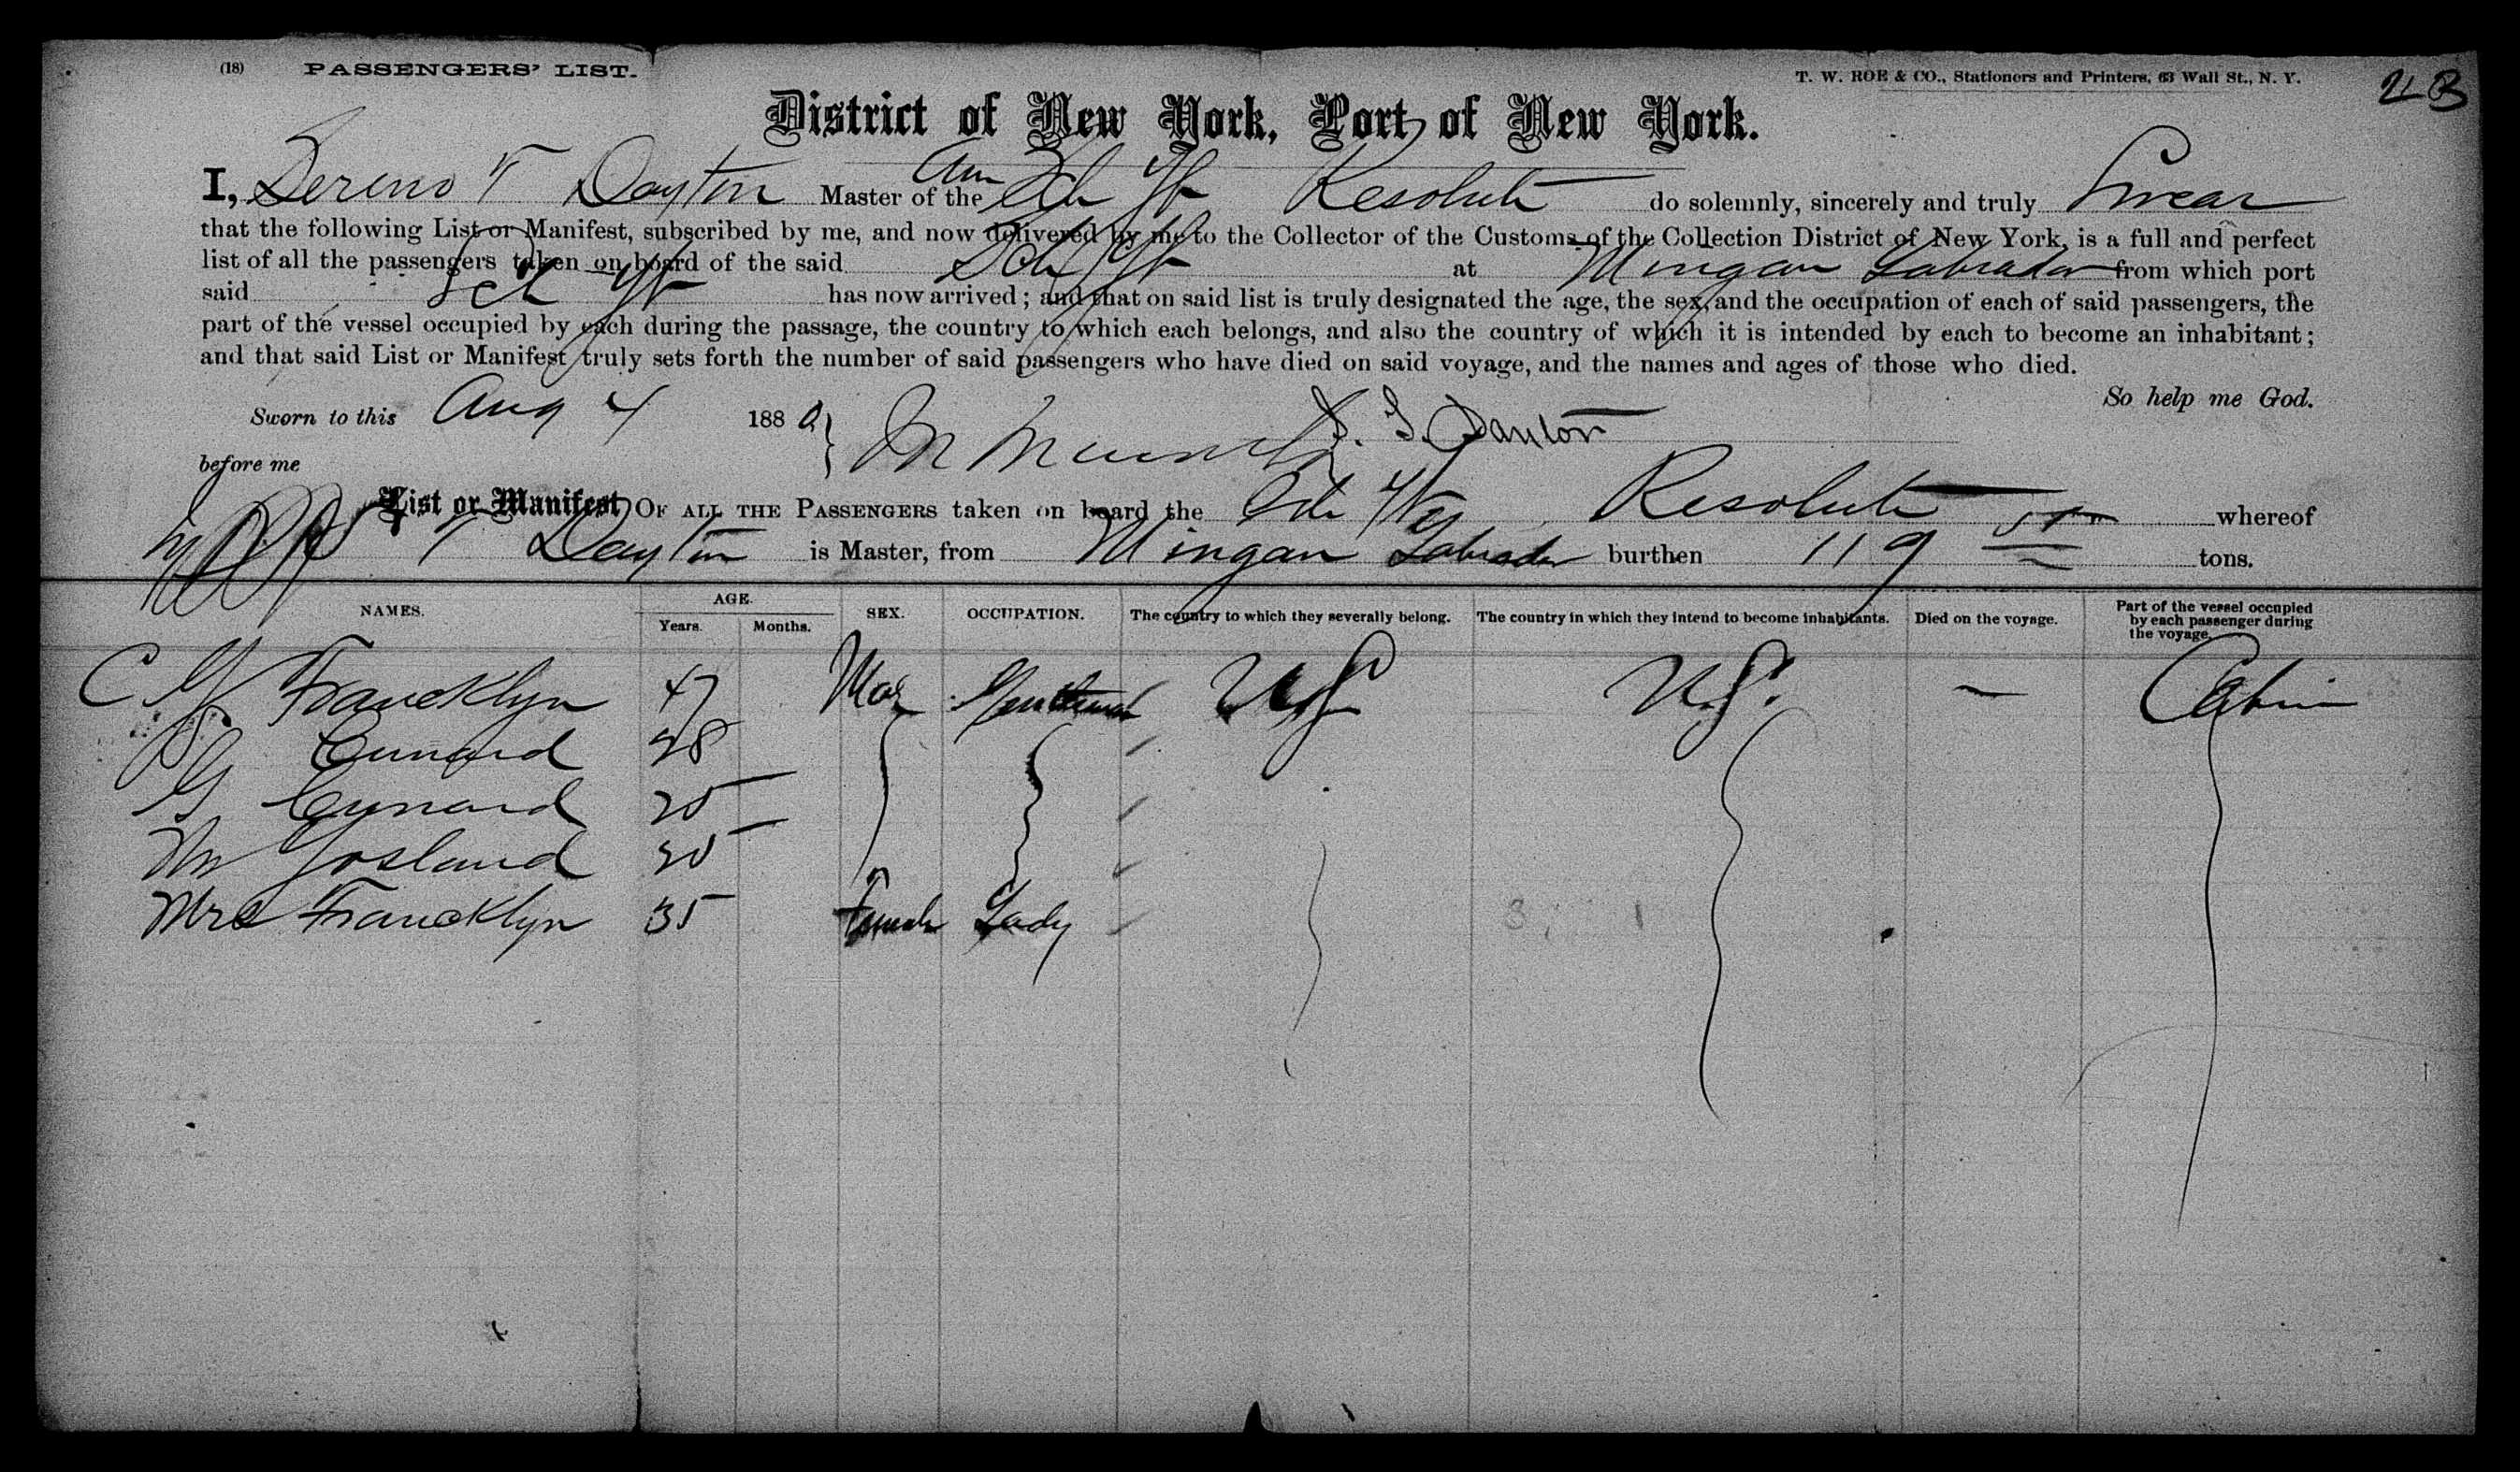 (18) PASSENGERS' LIST.
T. W. ROE & CO., Stationers and Printers, 63 Wall St., N. Y.
District of New York, Port of New York.
Am
I, Sereno T Dayton Master of the Sch Yt Resolute do solemnly, sincerely and truly Swear
that the following List or Manifest, subscribed by me, and now delivered by me to the Collector of the Customs of the Collection District of New York, is a full and perfect
list of all the passengers taken on board of the said Sch Yt at Mingan Labrador from which port
said Sch Yt has now arrived; and that on said list is truly designated the age, the sex, and the occupation of each of said passengers, the
part of the vessel occupied by each during the passage, the country to which each belongs, and also the country of which it is intended by each to become an inhabitant;
and that said List or Manifest truly sets forth the number of said passengers who have died on said voyage, and the names and ages of those who died.
So help me God.
Sworn to this Aug 4 188
S. T. Dayton
before me
List or Manifest OF ALL THE PASSENGERS taken on board the Sch Yt Resolute whereof
T Dayton is Master, from Mingan Labrador burthen 119 tons.
NAMES. AGE. Years. Months. SEX. OCCUPATION. The country to which they severally belong. The country in which they intend to become inhabitants. Died on the voyage. Part of the vessel occupied by each passenger during the voyage.
C G Francklyn 47 Male Gentleman US U.S. — Cabin
Cunard 28
G Cunard 25
Mr Gosland 30
Mrs Francklyn 35 Female Lady